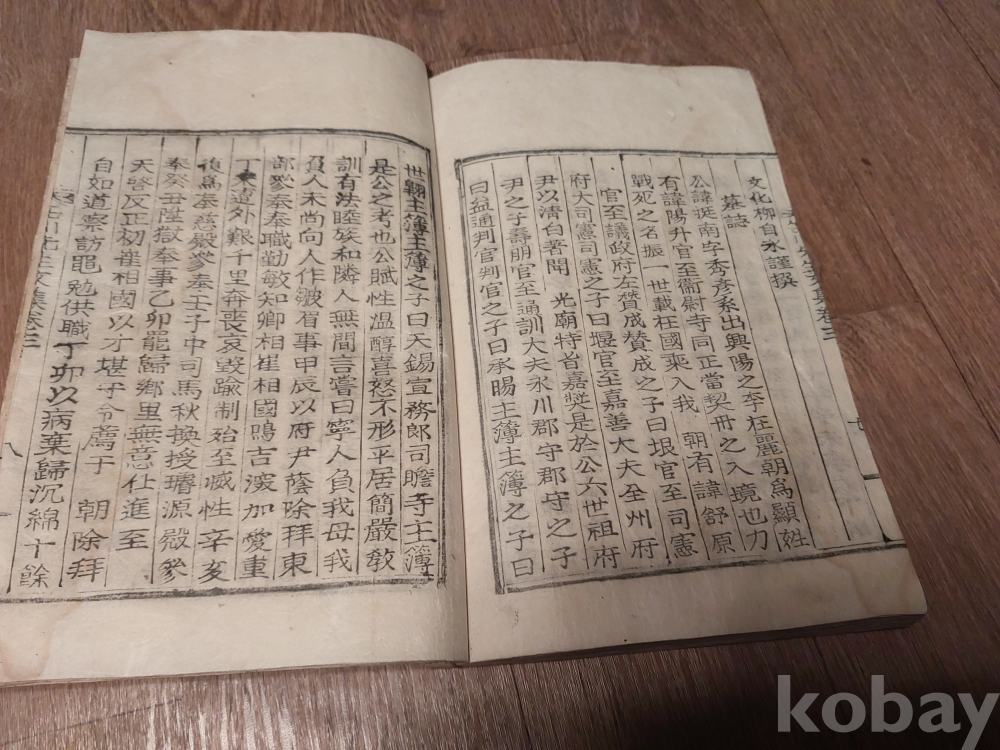 文化柳自氷謹撰
墓誌
公諱珽南字秀彦系出興陽之李在麗朝爲顯姓
有諱陽升官至衞尉寺同正當契丹之入境也力
戰死之名振一世載在國乘入我 朝有諱舒原
官至議政府左贊成贊成之子曰垠官至司憲
府大司憲司憲之子曰堰官至嘉善大夫全州府
尹以清白著聞 光廟特省嘉奬是於公六世祖府
尹之子壽朋官至通訓大夫永川郡守郡守之子
曰益通判官判官之子曰承賜主簿主簿之子曰
世翺主簿主簿之子曰天錫宣務郎司贍寺主簿
是公之考也公賦性溫醇喜怒不形平居簡嚴敎
訓有法睦族和隣人無間言嘗曰寧人負我母我
負人未尚向人作皴眉事甲辰以府尹蔭除拜東
部參奉奉職勤敏知卿相崔相國鳴吉深加愛重
丁 遭外艱千里奔喪哀毀踰制殆至滅性辛亥
復爲奉慈殿參奉壬子中司馬秋換授璿源殿參
奉癸丑陞獄奉事乙卯罷歸鄕里無意仕進至
天啓反正初崔相國以才堪守令薦于 朝除拜
自如道察訪黽勉供職丁卯以病棄歸沉綿十餘
文集卷三
八
kobay